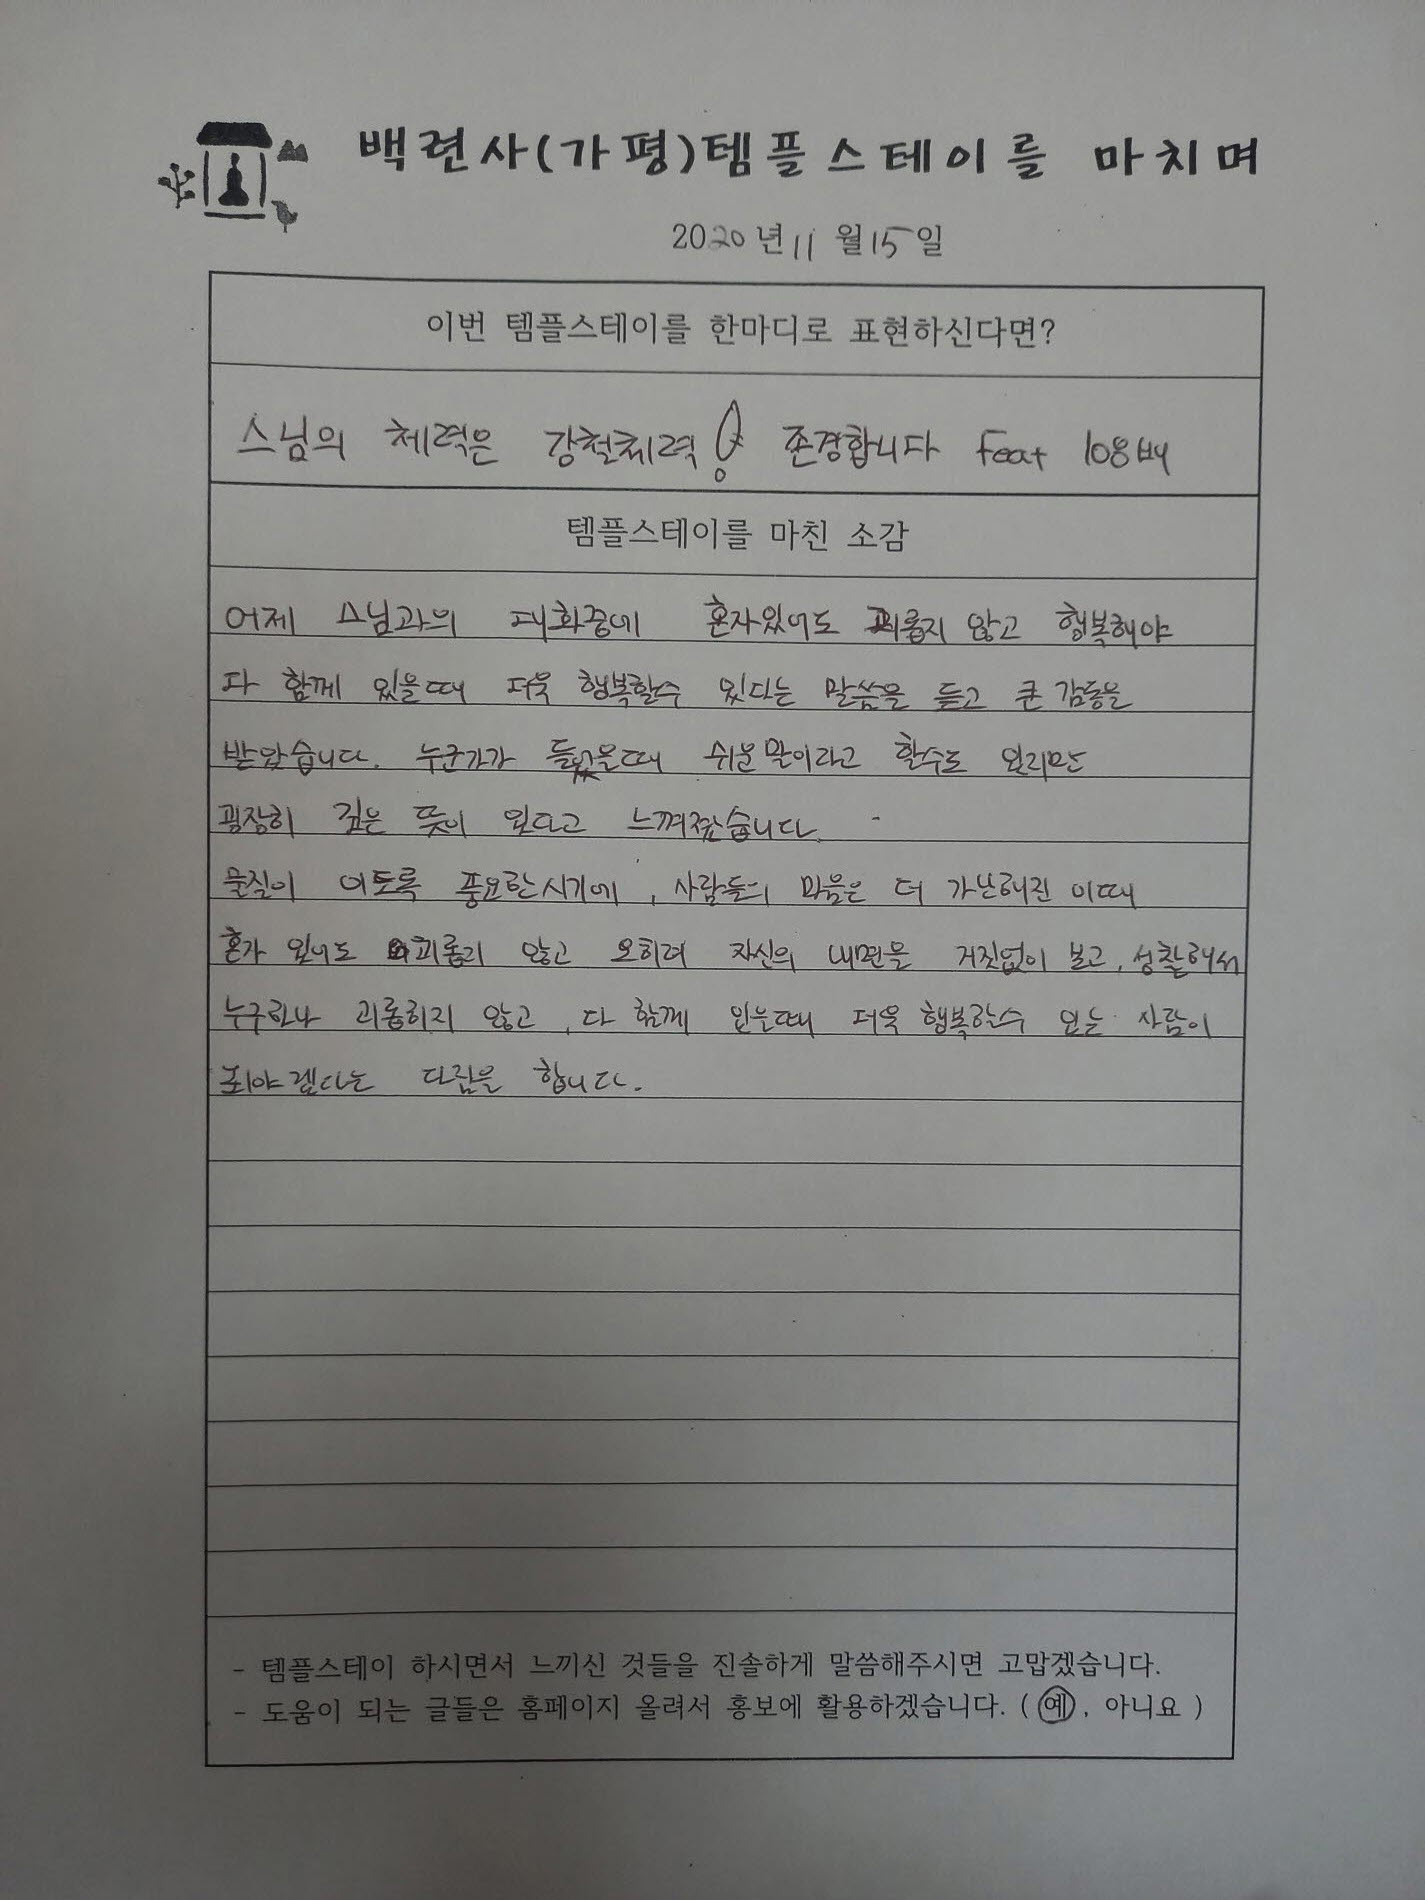 백련사(가평)템플스테이를 마치며
2020년 11월 15일
이번 템플스테이를 한마디로 표현하신다면?
스님의 체력은 강철체력! 존경합니다 Feat 108배
템플스테이를 마친 소감
어제 스님과의 대화중에 혼자있어도 괴롭지 않고 행복해야
다 함께 있을때 더욱 행복할수 있다는 말씀을 듣고 큰 감동을
받았습니다. 누군가가 들었을때 쉬운말이라고 할수도 있지만
굉장히 깊은 뜻이 있다고 느껴졌습니다.
물질이 이토록 풍요한시기에, 사람들의 마음은 더 가난해진 이때
혼자 있어도 괴롭지 않고 오히려 자신의 내면을 거짓없이 보고, 성찰해서
누구하나 괴롭히지 않고, 다 함께 있을때 더욱 행복할수 있는 사람이
되야겠다는 다짐을 합니다.
- 템플스테이 하시면서 느끼신 것들을 진솔하게 말씀해주시면 고맙겠습니다.
- 도움이 되는 글들은 홈페이지 올려서 홍보에 활용하겠습니다. ( 예, 아니요 )